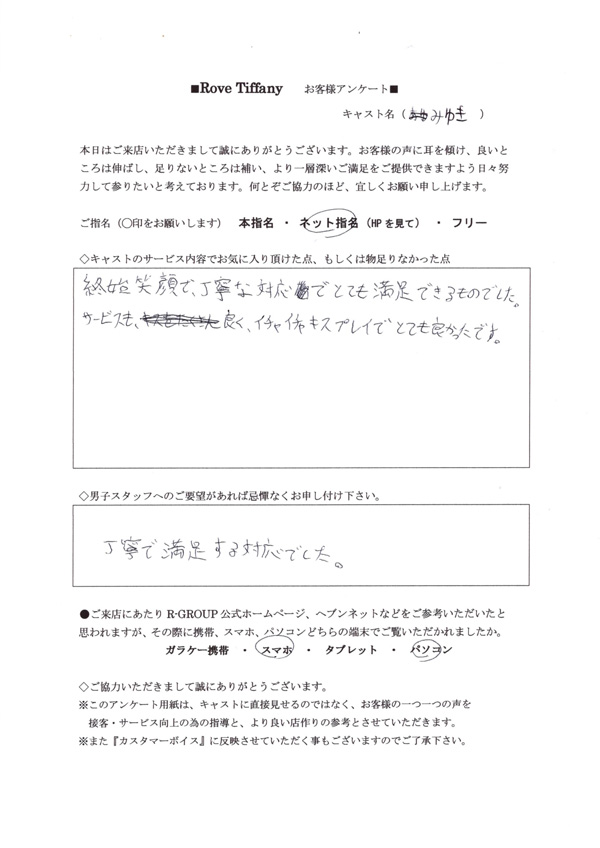 ■Rove Tiffany　お客様アンケート■
キャスト名（ みゆき ）
本日はご来店いただきまして誠にありがとうございます。お客様の声に耳を傾け、良いと
ころは伸ばし、足りないところは補い、より一層深いご満足をご提供できますよう日々努
力して参りたいと考えております。何とぞご協力のほど、宜しくお願い申し上げます。
ご指名（〇印をお願いします）　本指名　・　ネット指名（HPを見て）　・　フリー
◇キャストのサービス内容でお気に入り頂けた点、もしくは物足りなかった点
終始笑顔で、丁寧な対応でとても満足できるものでした。
サービスも、良く、イチャイチャキスプレイでとても良かったです。
◇男子スタッフへのご要望があれば忌憚なくお申し付け下さい。
丁寧で満足する対応でした。
●ご来店にあたり R-GROUP 公式ホームページ、ヘブンネットなどをご参考いただいたと
思われますが、その際に携帯、スマホ、パソコンどちらの端末でご覧いただかれましたか。
ガラケー携帯　・　スマホ　・　タブレット　・　パソコン
◇ご協力いただきまして誠にありがとうございます。
※このアンケート用紙は、キャストに直接見せるのではなく、お客様の一つ一つの声を
接客・サービス向上の為の指導と、より良い店作りの参考とさせていただきます。
※また『カスタマーボイス』に反映させていただく事もございますのでご了承下さい。